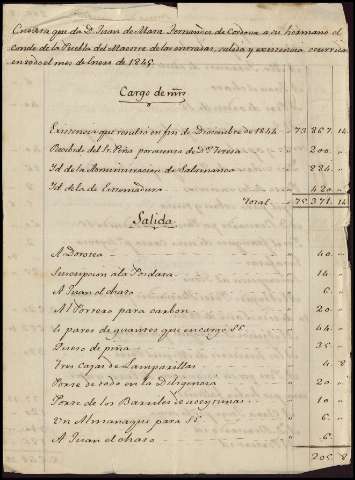 Cuenta que da Dn. Juan de Mara Fernandez de Cordova a su hermano el
Conde de la Puebla del Maestre de las entradas, salida y existencia ocurrida
en todo el mes de Enero de 1845.
Cargo de mrs
Existencia que resultó en fin de Diciembre de 1844 " 73.867. 14
Recibido del Sr. Peña por cuenta de Da. Teresa " 200. "
Id de la Administracion de Salamanca " 884. "
Id de la de Estremadura " 420. "
Total " 75.371. 14
Salida
A Dorotea " 40. "
Suscripcion a la Posdata " 14 "
A Juan el chaso " 6. "
Al Portero para carbon " 20. "
6 pares de guantes que encargó S.E. " 44. "
Queso de piña " 35 "
Tres cajas de Lamparillas " 4. 8
Porte de todo en la Diligencia " 20. "
Porte de los Barriles de aceytunas " 10 "
Un Almanaque para S.E. " 6. "
A Juan el chaso " 6. "
205. 8